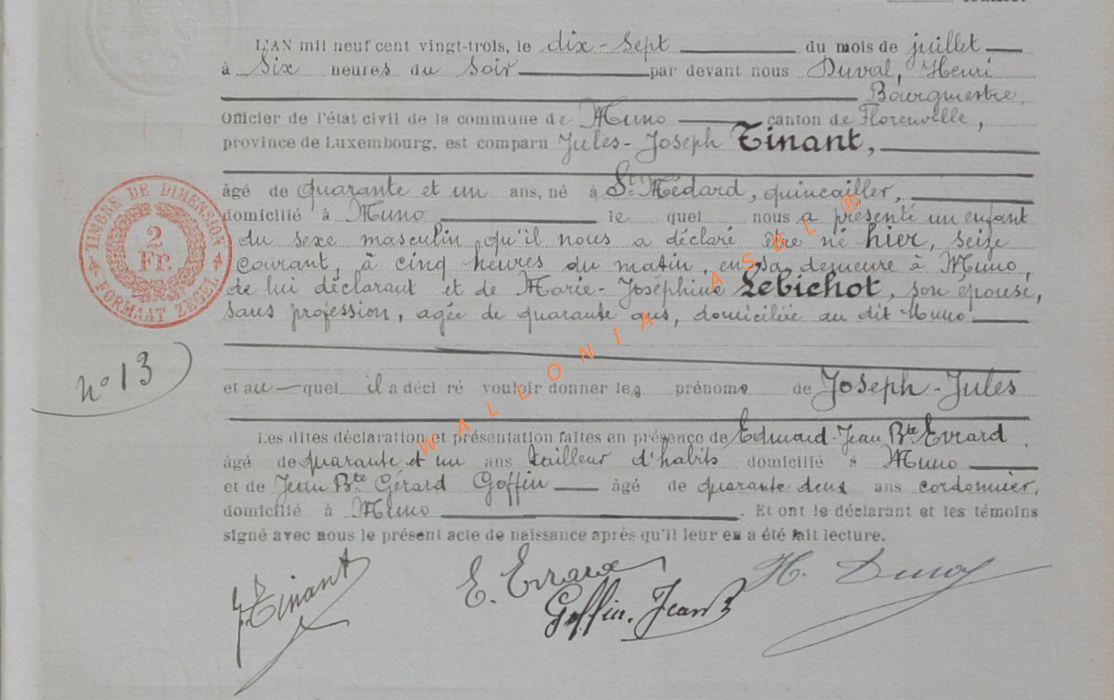 L'AN mil neuf cent vingt-trois, le dix-sept du mois de juillet
à six heures du soir par devant nous Duval, Henri
Bourgmestre,
Officier de l'état civil de la commune de Muno canton de Florenville,
province de Luxembourg, est comparu Jules-Joseph Tinant,
âgé de quarante et un ans, né à St Médard, quincailler,
domicilié à Muno le quel nous a présenté un enfant
du sexe masculin qu'il nous a déclaré être né hier, seize
courant, à cinq heures du matin, en sa demeure à Muno,
de lui déclarant et de Marie-Joséphine Lebichot, son épouse,
sans profession, agée de quarante ans, domiciliée au dit Muno.
et au quel il a décl ré vouloir donner les prénoms de Joseph-Jules
Les dites déclaration et présentation faites en présence de Edmard-Jean Bte Evrard
âgé de quarante et un ans tailleur d'habits domicilié à Muno
et de Jean Bte Gérard Goffin âgé de quarante deux ans cordonnier,
domicilié à Muno. Et ont le déclarant et les témoins
signé avec nous le présent acte de naissance après qu'il leur en a été fait lecture.
TIMBRE DE DIMENSION
2
Fr.
FORMAAT ZEGEL
n° 13
J. Tinant
E. Evrard
Goffin. Jean B
H. Duval
WALLONIA ASBL ®